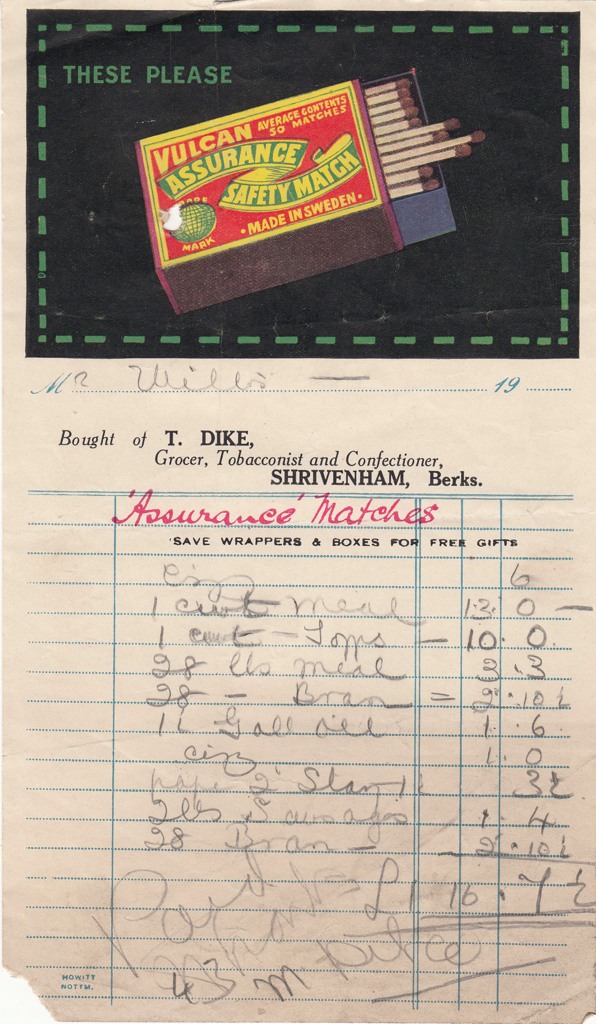 THESE PLEASE
VULCAN
AVERAGE CONTENTS
50 MATCHES
ASSURANCE
SAFETY MATCH
MARK
• MADE IN SWEDEN •
Mr Wills — 19
Bought of T. DIKE,
Grocer, Tobacconist and Confectioner,
SHRIVENHAM, Berks.
'Assurance' Matches
SAVE WRAPPERS & BOXES FOR FREE GIFTS
Cig 6
1 cwt meal 12. 0 —
1 cwt — — 10. 0
28 lbs meal 3. 3
28 — Bran = 2. 10½
Gall oil 1. 6
cig 1. 0
paper 2 Stamp 3½
2lbs Sausages 1. 4
28 Bran — 2. 10½
£1 16. 7½
Paid
HOWITT
NOTTM.